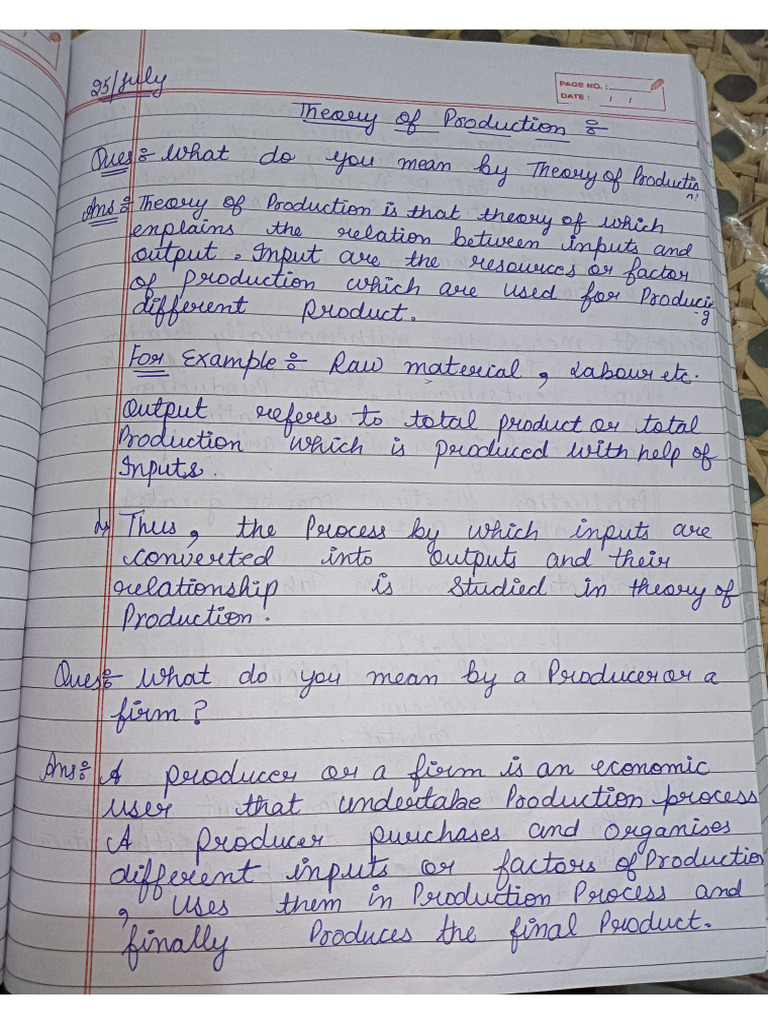 25/July
PAGE NO. :
DATE : / /
Theory of Production :-
Ques:- What do you mean by Theory of Productin
n?
Ans:- Theory of Production is that theory of which
explains the relation between inputs and
output. Input are the resources or factor
of production which are used for Producin
-g
different Product.
For Example :- Raw material, Labour etc.
Output refers to total product or total
Production which is produced with help of
Inputs.
Thus, the Process by which inputs are
converted into outputs and their
relationship is studied in theory of
Production.
Ques:- What do you mean by a Producer or a
firm?
Ans:- A producer or a firm is an economic
user that undertake Production process
A producer purchases and organises
different inputs or factors of Production
, uses them in Production Process and
finally Produces the final Product.